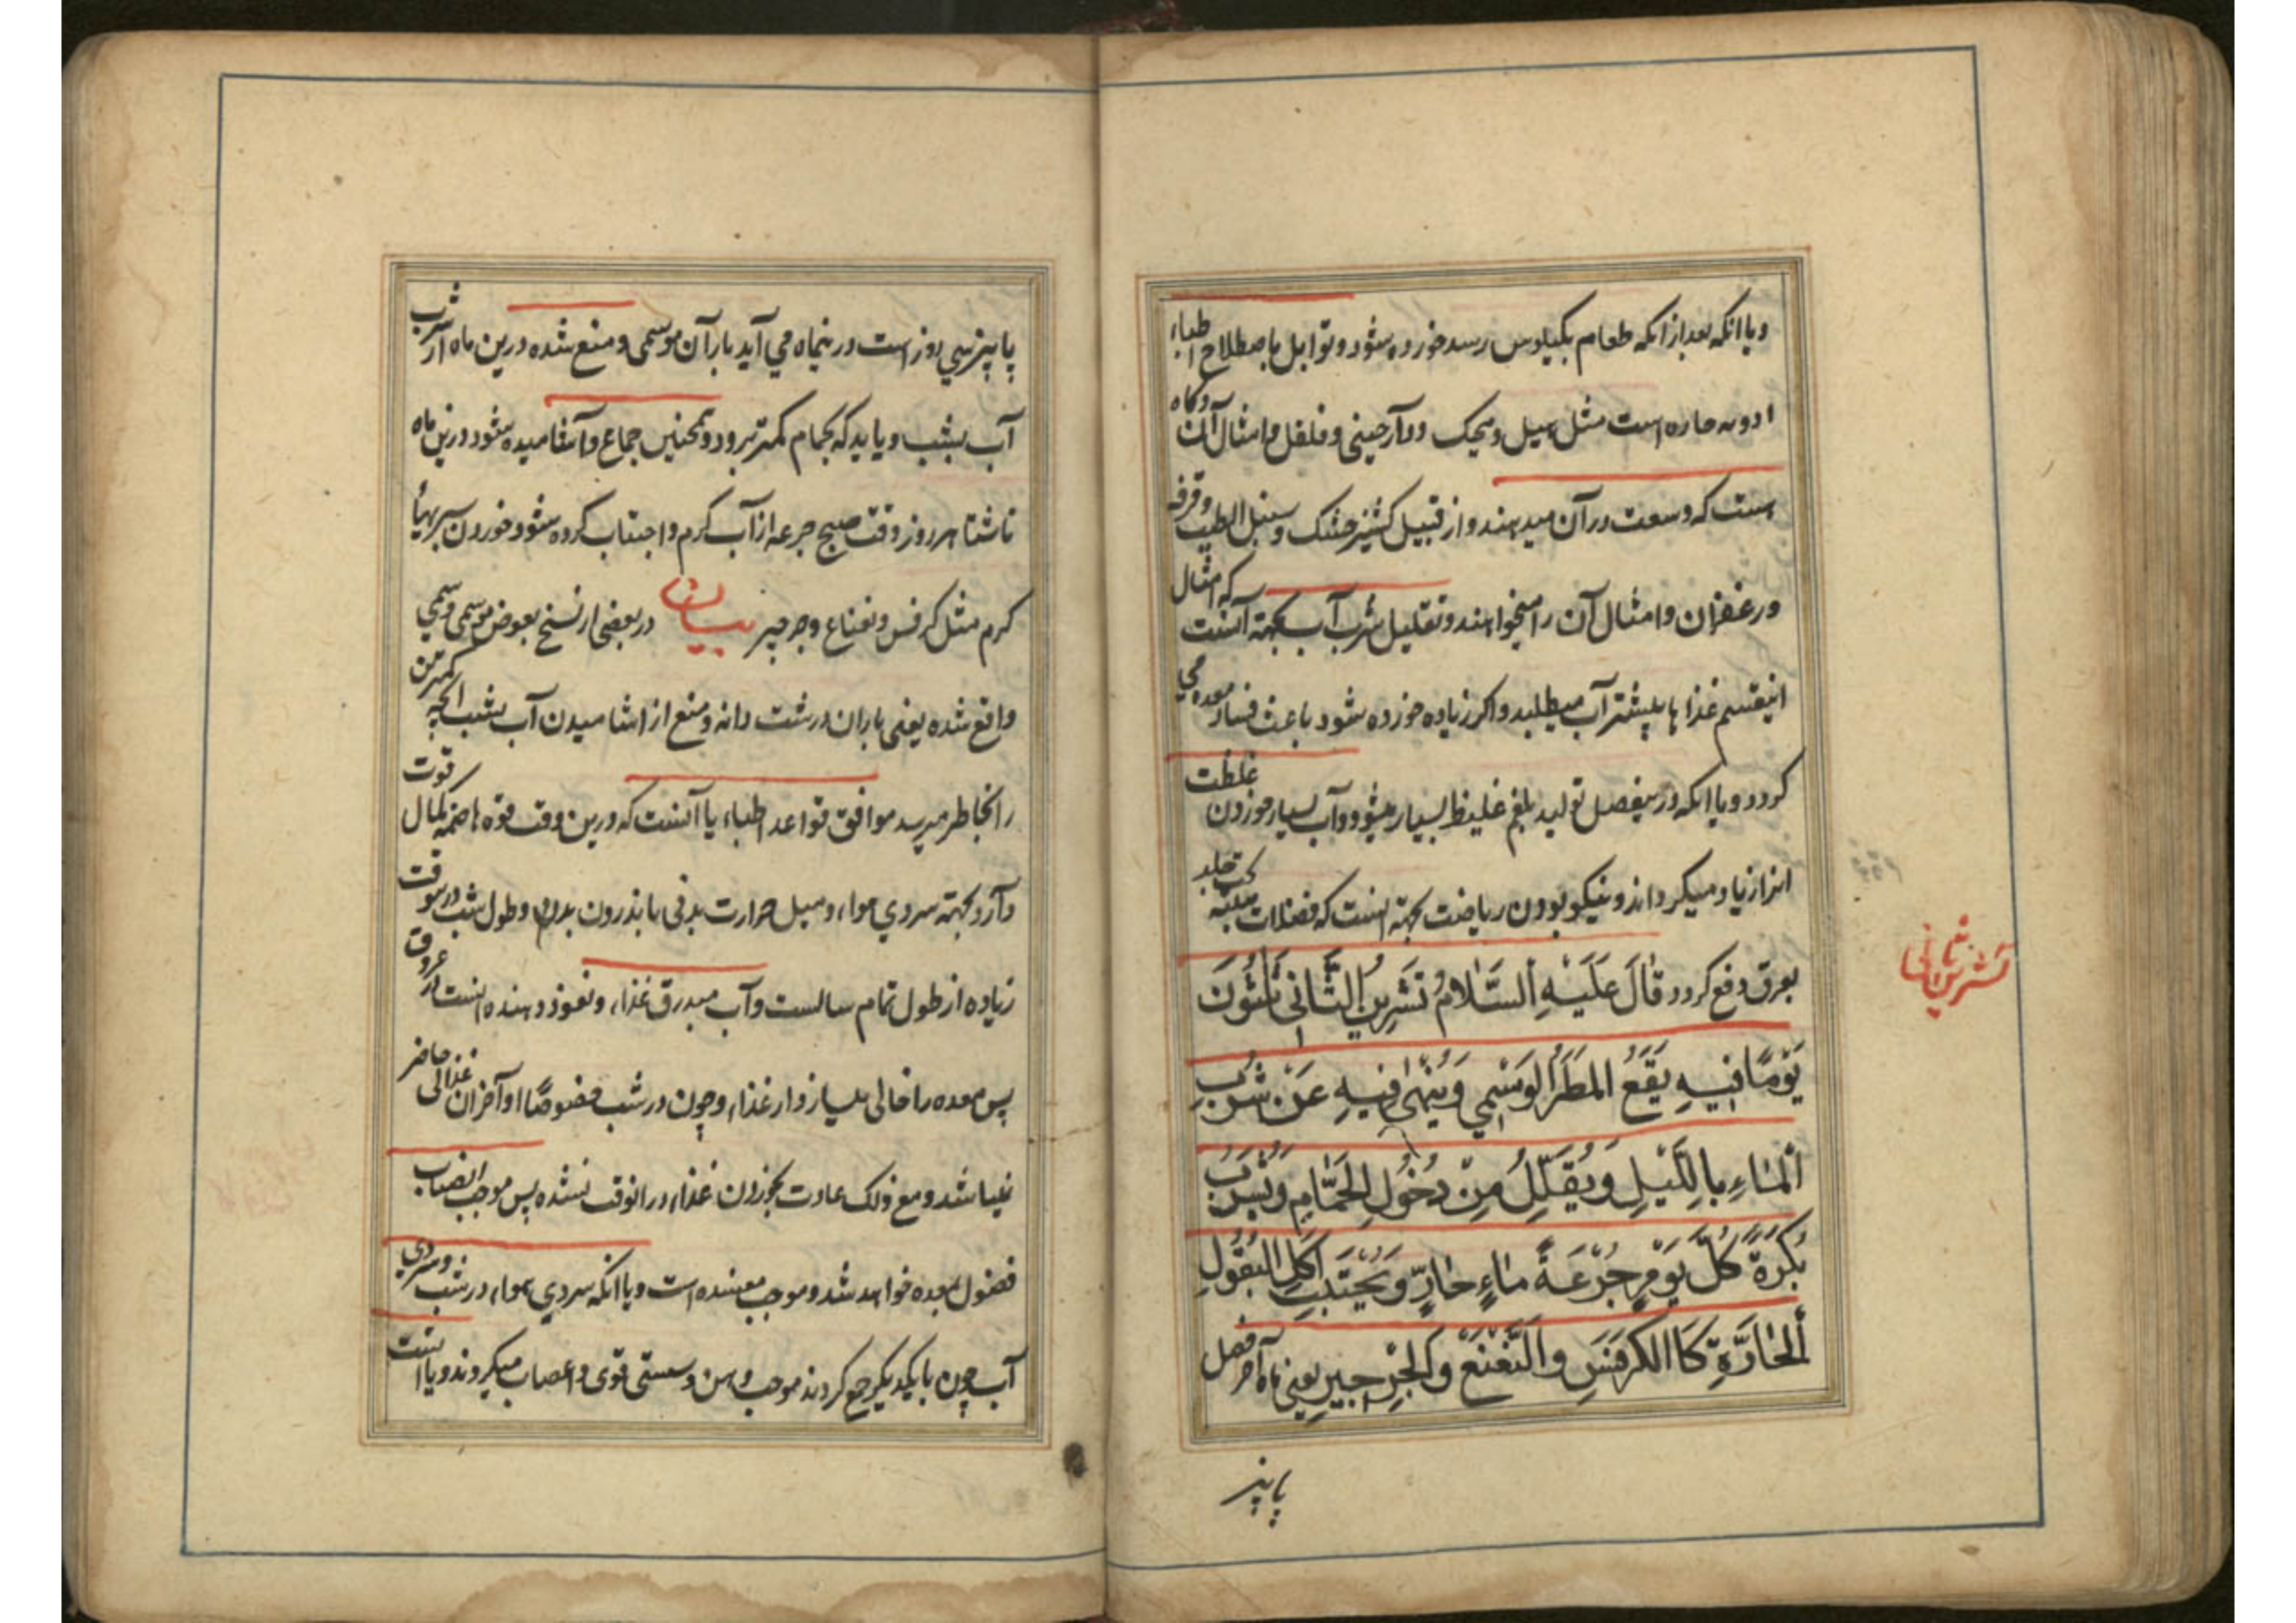 و یا انکه بعد از انکه طعام بکیلوس رسد خورده شود و توابل باصطلاح اطباء
ادویه حاره است مثل هیل و میخک و دارچینی و فلفل و امثال آن و کاه
هست که وسعت در آن میدهند و از قبیل کشنیز خشک و سنبل الطیب و قرفه
و زعفران و امثال آن را میخواهند و تقلیل شرب آب بجهته آنست که امثال
اینقسم غذا ها بیشتر آب میطلبد و اکر زیاده خورده شود باعث فساد معده می
کردد و یا انکه در ینفصل تولید بلغم غلیظ بسیار میشود و آب بسیار خوردن غلظت
انرا زیاد میکرداند و نیکو بودن ریاضت بجهته انست که فضلات تحت جلد
بعرق دفع کردد قَالَ عَلَیْهِ اَلسَّلَامُ تَشْرِینِ الثَّانِی ثَلٰثُونَ
یَوْمًا فِیهِ یَقَعُ المَطَرُ الوَسْمِی وَیُنْهٰی فِیهِ عَنْ شُرْبِ
اَلْمَاءِ بِالَّیْلِ وَیُقَلِّلُ مِنْ دُخُولِ الْحَمَّامِ وَیُشْرَبُ
بُکْرَةً کُلَّ یَوْمٍ جُرْعَةً مَاءٍ حَارٍّ وَیُجْتَنَبُ اَکْلِ الْبُقُولِ
اَلْحَارَّةِ کَا الکَرَفْسِ وَالنَّعْنَعِ وَالْجِرْجِیرِ یعنی ماه آخر فصل
پاییز
تشرین ثانی
پاییز سی روز است در ینماه می آید باران موسمی و منع شده در ین ماه از شرب
آب بشب و باید که بحمام کمتر برود و همچنین جماع و آشامیده شود در ین ماه
ناشتا هر روز وقت صبح جرعه از آب کرم و اجتناب کرده شود خوردن سبزیها
کرم مثل کرفس و نعناع و جرجیر بیان در بعضی از نسخ بعوض موسمی وسمی
واقع شده یعنی باران درشت دانه و منع از اشامیدن آب بشب انچه کمترین
را بخاطر میرسد موافق قواعد اطباء یا آنست که در ین وقت قوه هاضمه کمال قوت
دارد بجهته سردی هوا، و میل حرارت بدنی باندرون بدن و طول شب در ینوقت
زیاده از طول تمام سالست و آب مبدرق غذا، و نفوذ دهنده انست در عروق
پس معده را خالی میسازد از غذا، و چون در شب خصوصًا اواخر ان غذائی حاضر
نمیباشد و مع ذلک عادت بخوردن غذا، در انوقت نشده پس موجب انصباب
فضول بمعده خواهد شد و موجب مفسده است و یا انکه سردی هوا، در شب و سردی
آب چون با یکدیکر جمع کردند موجب وهن و سستی قوی و اعصاب میکردند و یا انست